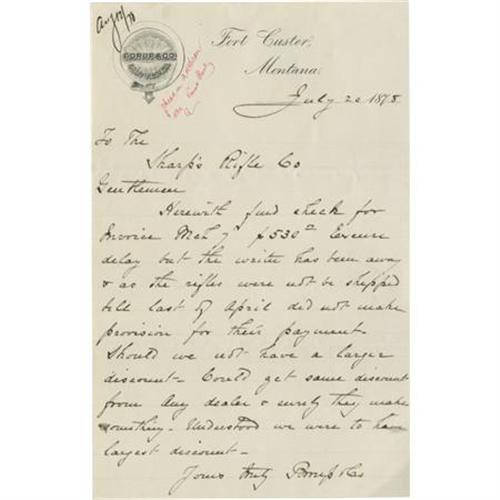 Aug 12/78
Fort Custer,
Montana.
July 20 1878.
To The
Sharp's Rifle Co
Gentlemen
Herewith find check for
Invoice Mch 7 $530 Excuse
delay but the writer has been away
& as the rifles were not be shipped
till last of April did not make
provision for their payment-
Should we not have a larger
discount- Could get same discount
from any dealer & surely they make
something- Understood we were to have
largest discount-
Yours truly